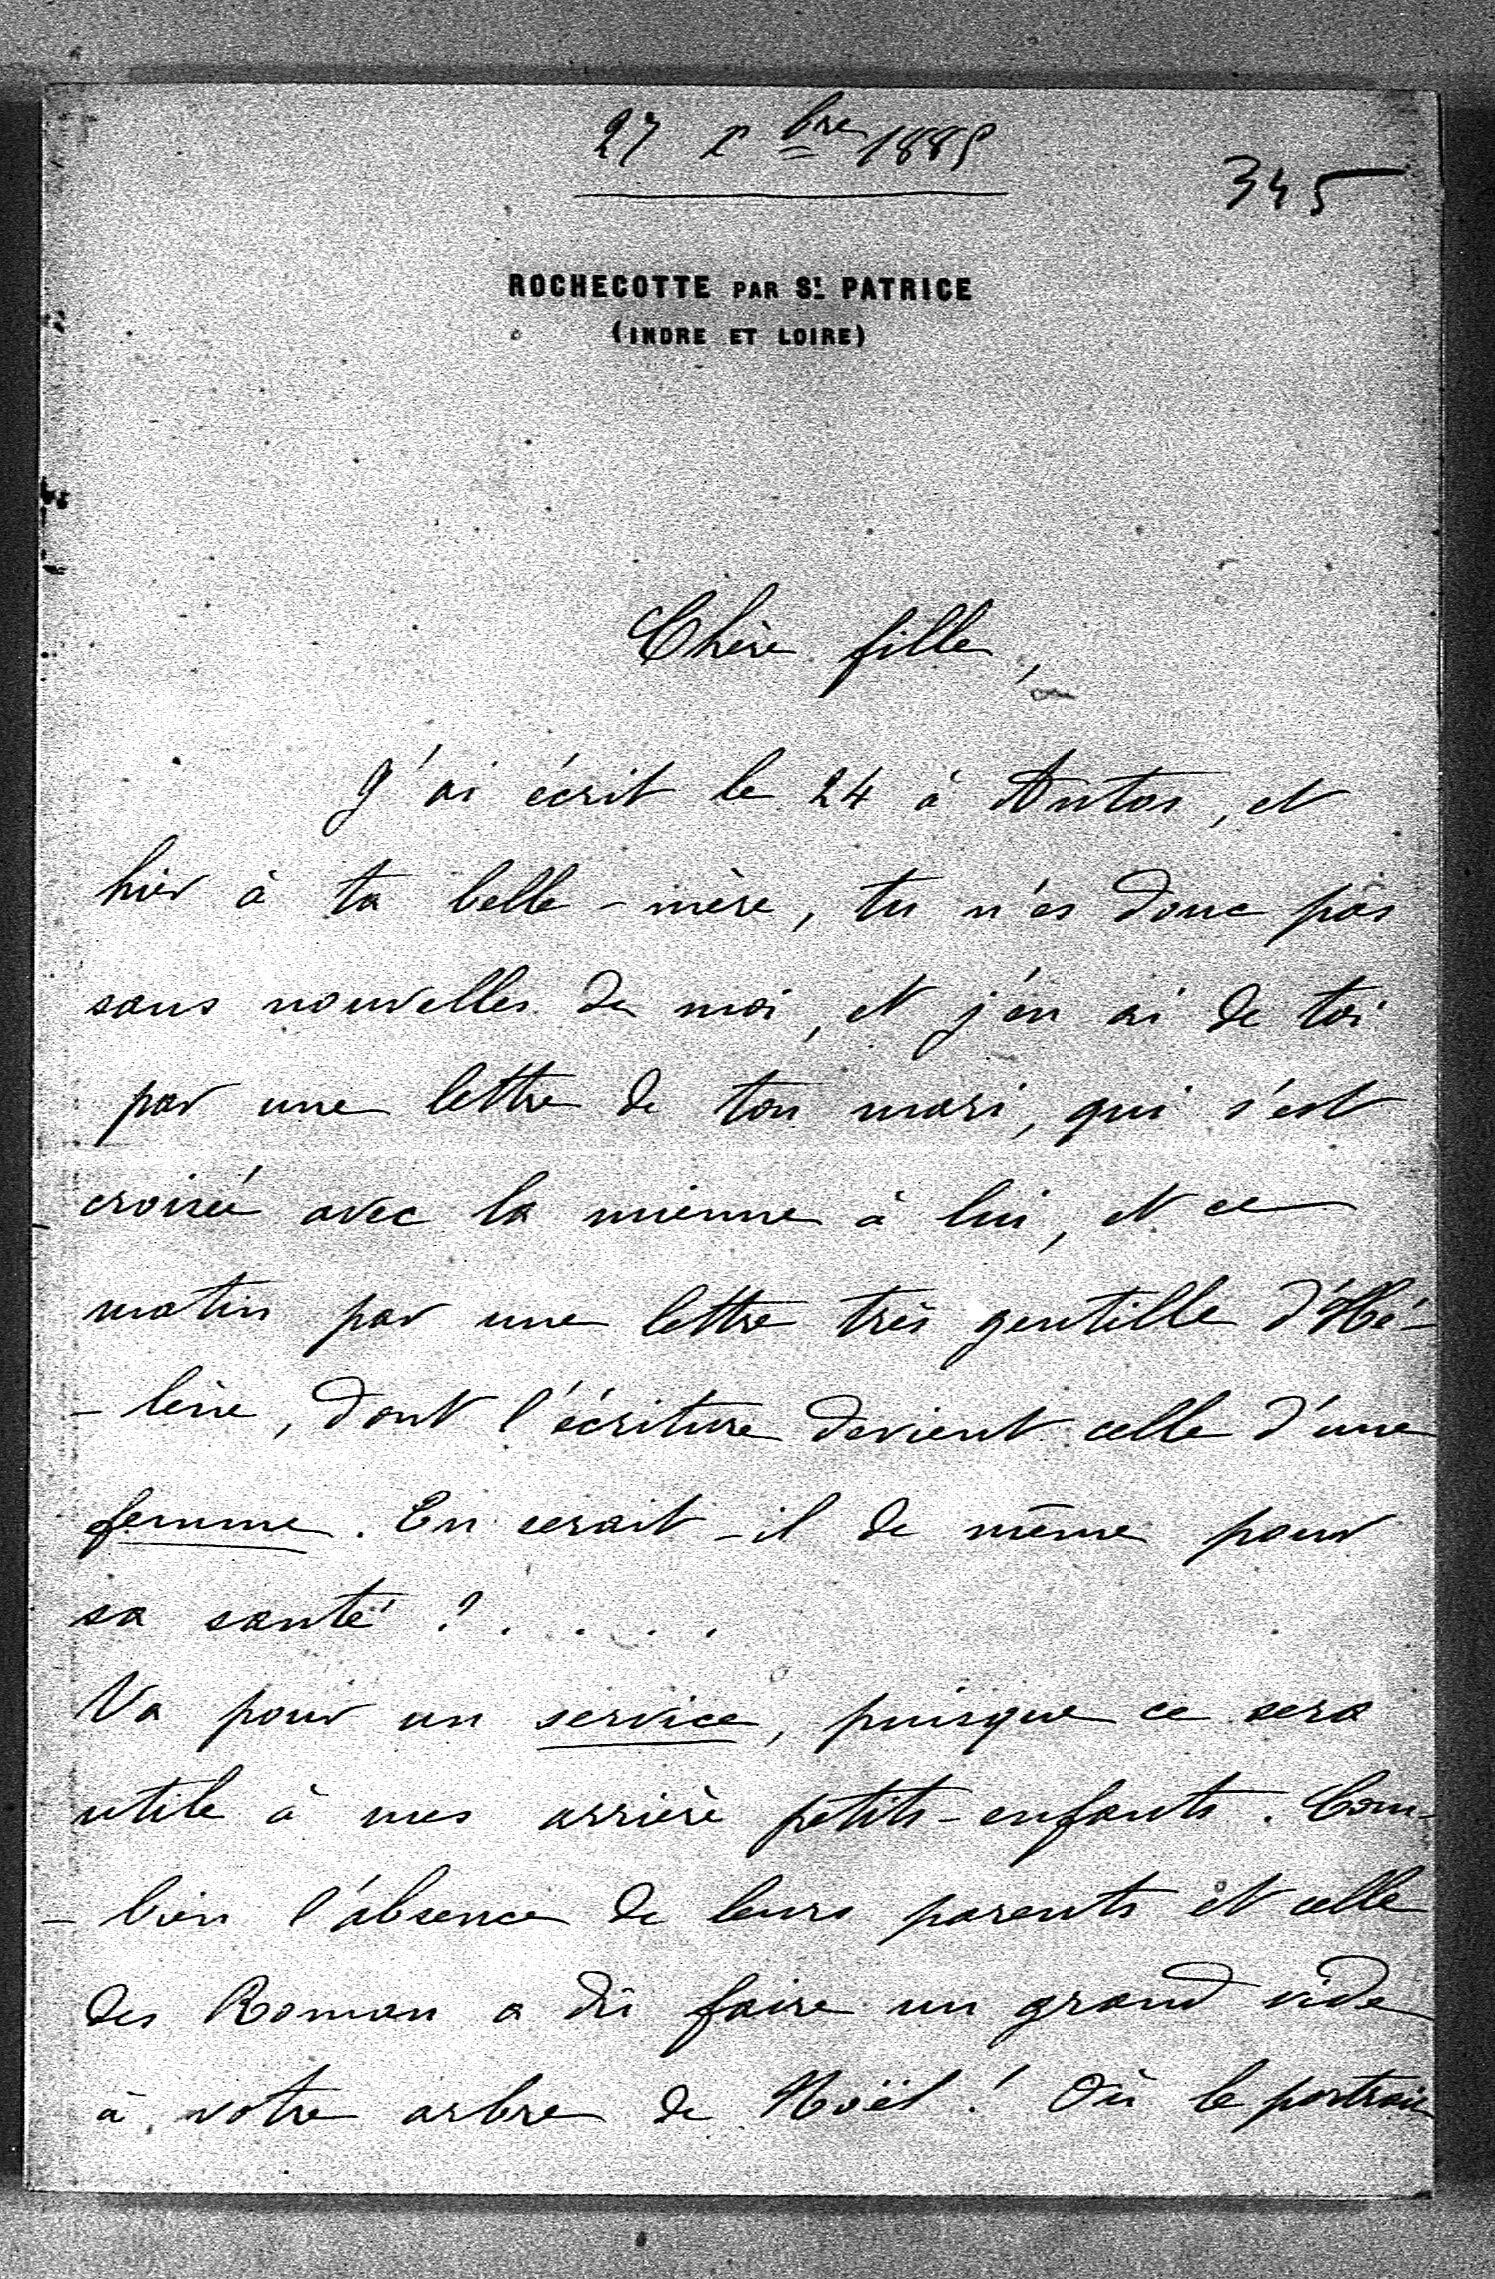 27 Xbre 1885
345
ROCHECOTTE PAR ST. PATRICE
(INDRE ET LOIRE)
Chère fille,
J'ai écrit le 24 à Antos, et
hier à ta belle-mère, tu n'es donc pas
sans nouvelles de moi, et j'en ai de toi
par une lettre de ton mari, qui s'est
croisée avec la mienne à lui, et ce
matin par une lettre très gentille d'Hé-
-lène, dont l'écriture devient celle d'une
femme. En serait-il de même pour
sa santé ? . . . .
Va pour un service, puisque ce sera
utile à mes arrière petits-enfants. Com-
-bien l'absence de leurs parents et celle
des Roman a dû faire un grand vide
à votre arbre de Noël ! Où le portrait